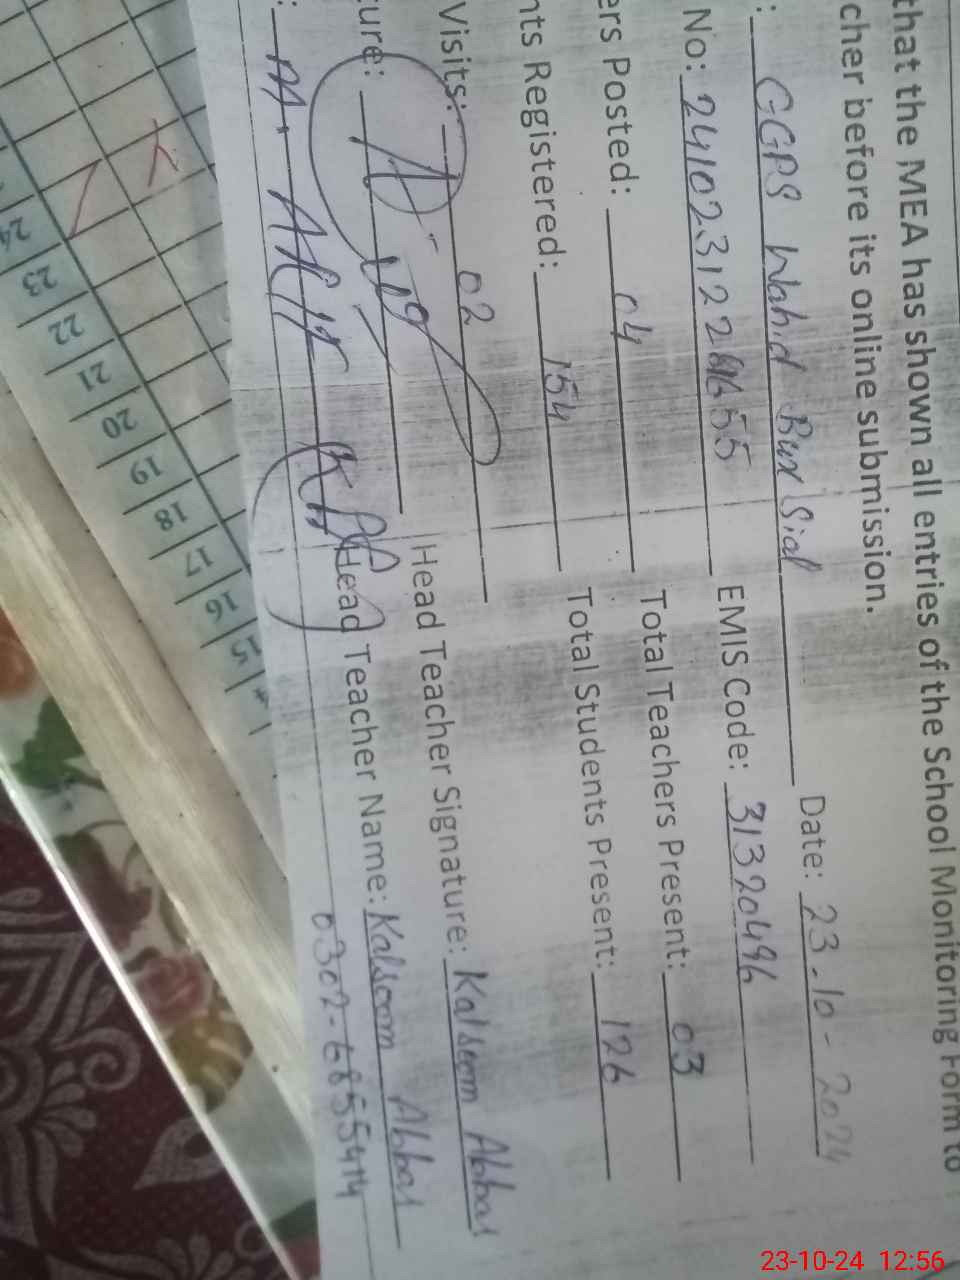 that the MEA has shown all entries of the School Monitoring Form to
cher before its online submission.
: GGPS Wahid Bux Sial Date: 23-10-2024
No: EMIS Code: 31320496
ers Posted: 04 Total Teachers Present: 03
nts Registered: 154 Total Students Present: 126
Visits: 02
ure: Head Teacher Signature: Kalsoom Abbas
: Head Teacher Name: Kalsoom Abbas
0302-6855414
24 23 22 21 20 19 18 17 16 15
23-10-24 12:56